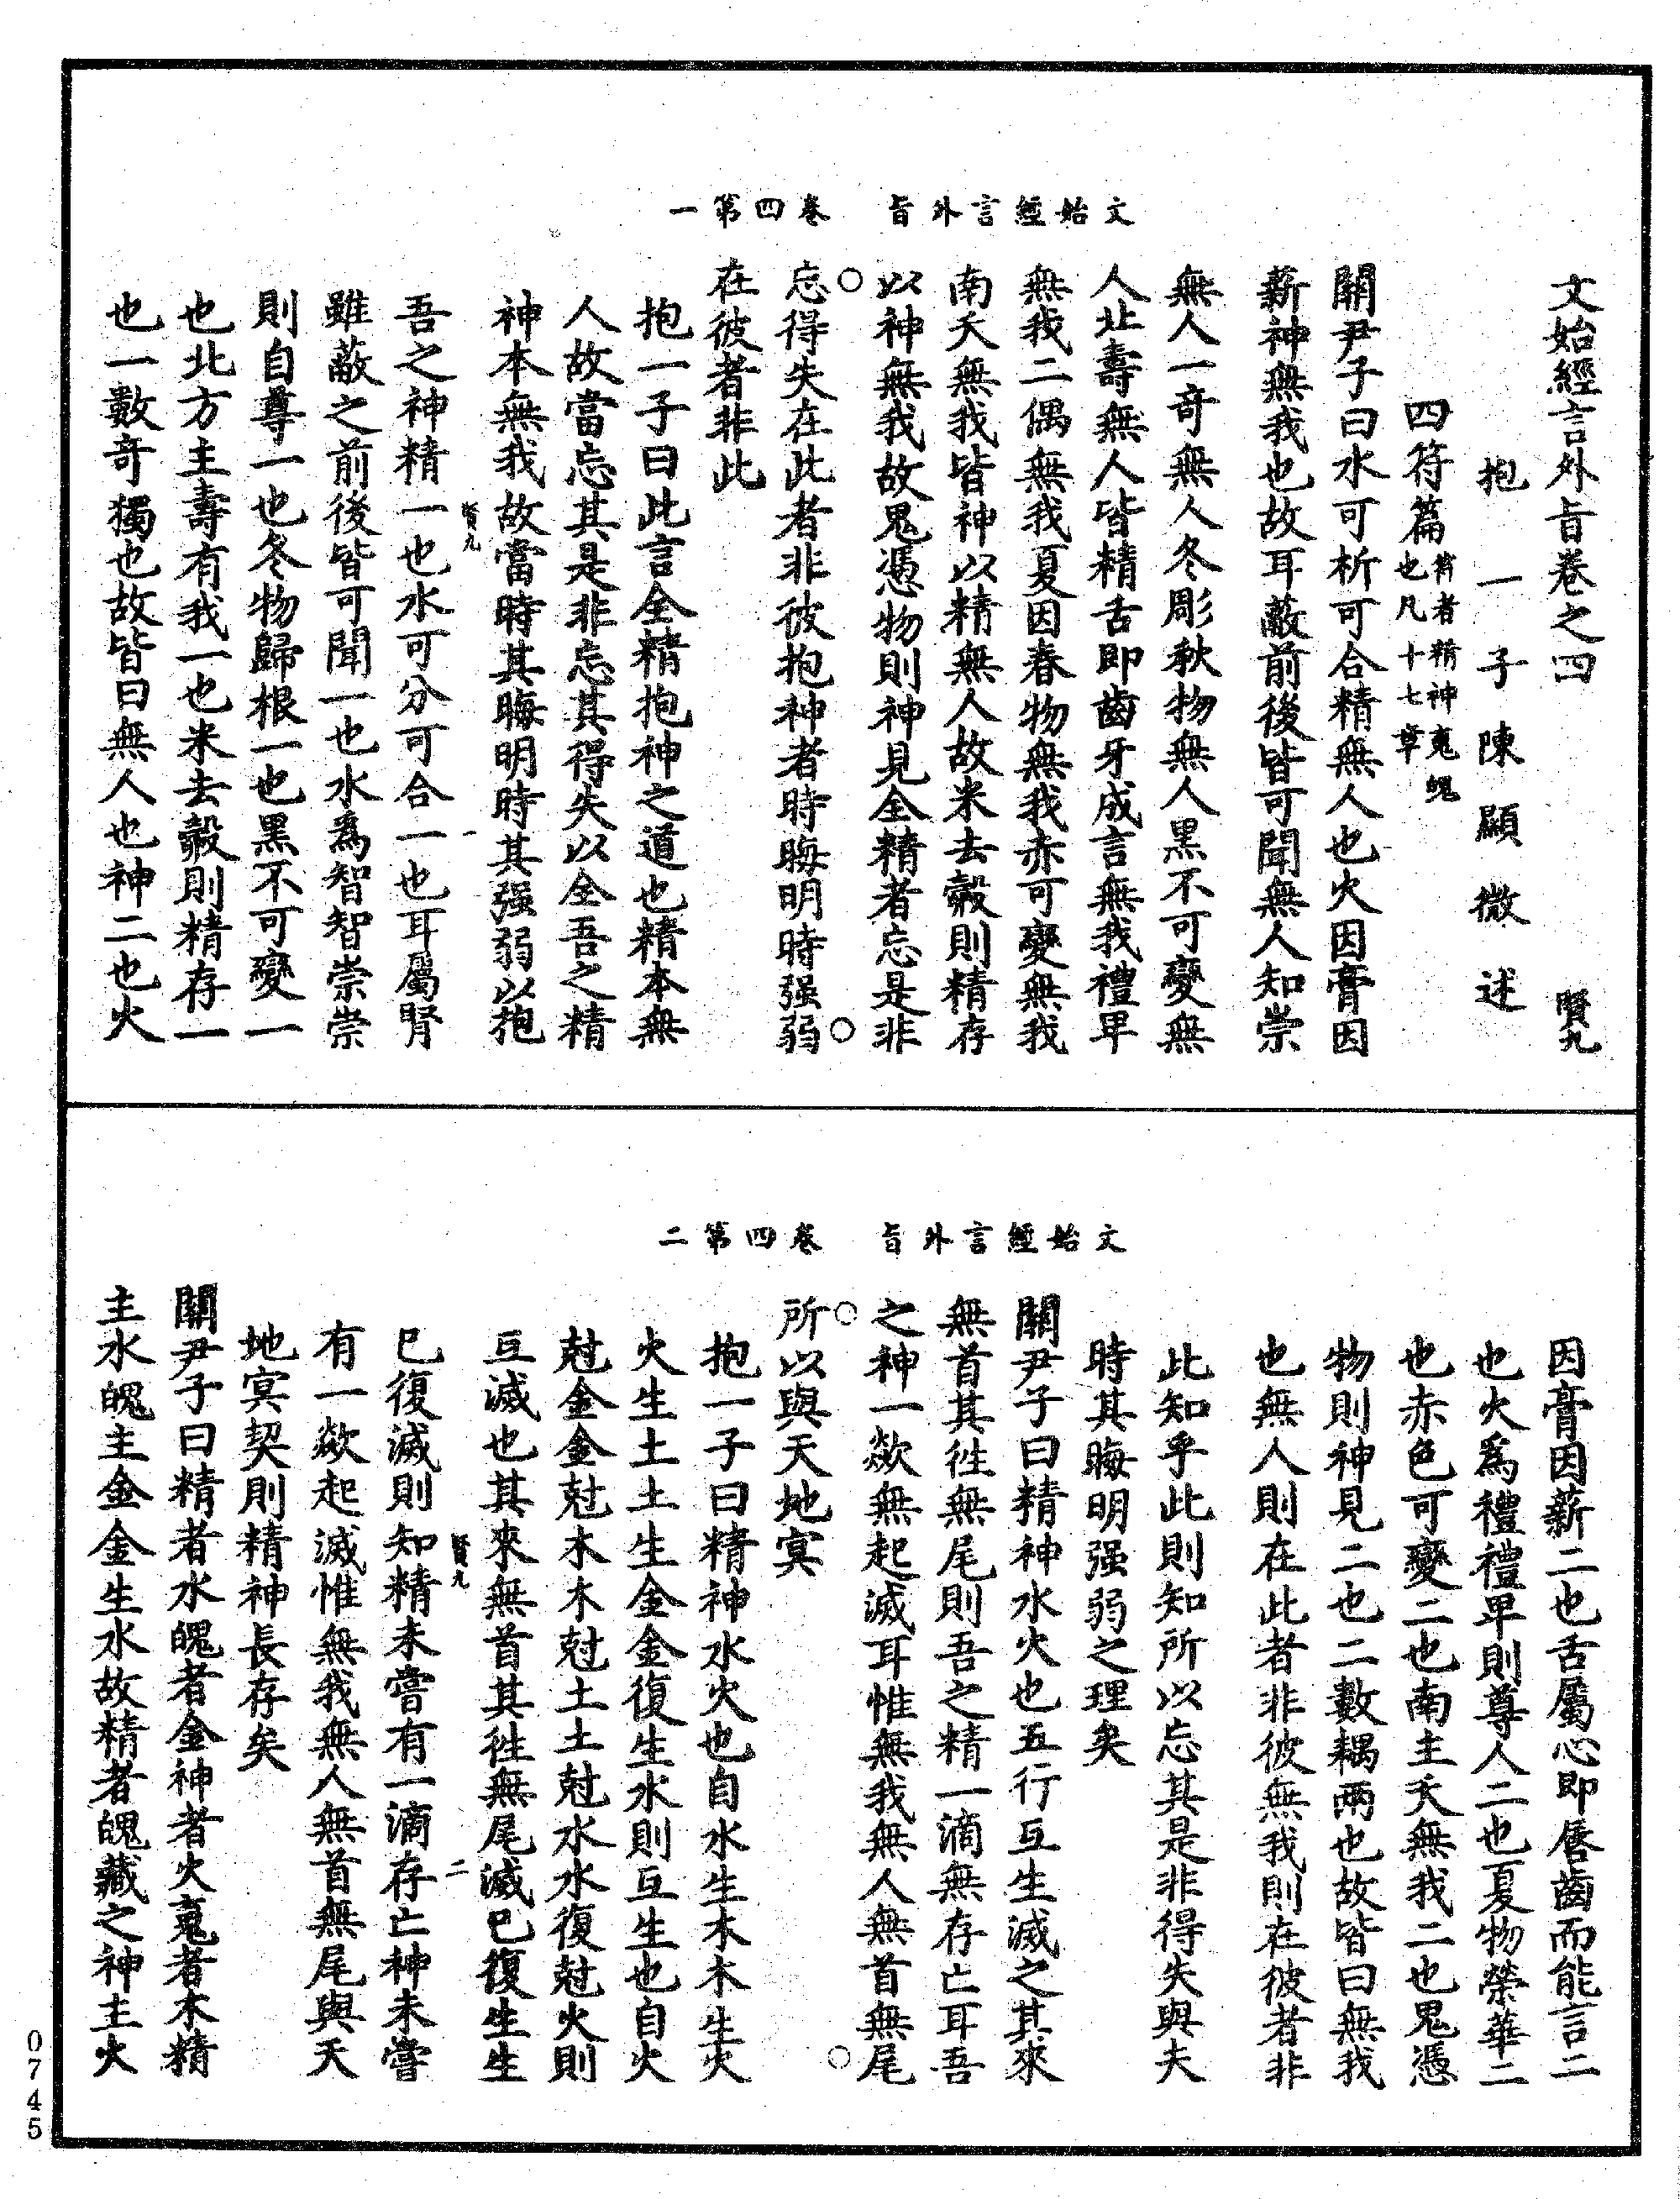 文始經言外旨　卷四第一
文始經言外旨卷之四　賢九
抱一子陳顯微述
四符篇符者精神䰟魄也凡十七章
關尹子曰水可析可合精無人也火因膏因
薪神無我也故耳蔽前後皆可聞無人知崇
無人一奇無人冬彫秋物無人黑不可變無
人北壽無人皆精舌即齒牙成言無我禮卑
無我二偶無我夏因春物無我赤可變無我
南夭無我皆神以精無人故米去殼則精存
以神無我故鬼憑物則神見全精者忘是非
忘得失在此者非彼抱神者時晦明時强弱
在彼者非此
抱一子曰此言全精抱神之道也精本無
人故當忘其是非忘其得失以全吾之精
神本無我故當時其晦明時其强弱以抱
賢九　一
吾之神精一也水可分可合一也耳屬腎
雖蔽之前後皆可聞一也水爲智智崇崇
則自尊一也冬物歸根一也黑不可變一
也北方主壽有我一也米去殼則精存一
也一數奇獨也故皆曰無人也神二也火
文始經言外旨　卷四第二
因膏因薪二也舌屬心即唇齒而能言二
也火爲禮禮卑則尊人二也夏物榮華二
也赤色可變二也南主夭無我二也鬼憑
物則神見二也二數耦兩也故皆曰無我
也無人則在此者非彼無我則在彼者非
此知乎此則知所以忘其是非得失與夫
時其晦明强弱之理矣
關尹子曰精神水火也五行互生滅之其來
無首其徃無尾則吾之精一滴無存亡耳吾
之神一歘無起滅耳惟無我無人無首無尾
所以與天地㝠
抱一子曰精神水火也自水生木木生火
火生土土生金金復生水則互生也自火
尅金金尅木木尅土土尅水水復尅火則
互滅也其來無首其徃無尾滅巳復生生
賢九　二
巳復滅則知精未嘗有一滴存亡神未嘗
有一歘起滅惟無我無人無首無尾與天
地㝠契則精神長存矣
關尹子曰精者水魄者金神者火䰟者木精
主水魄主金金生水故精者魄藏之神主火
0745